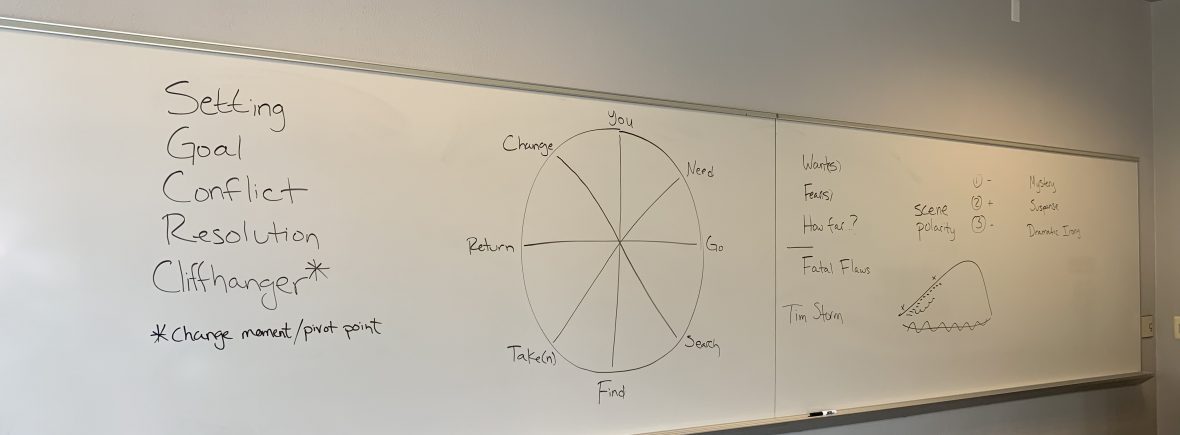 Setting
Goal
Conflict
Resolution
Cliffhanger*
*Change moment/pivot point
You
Need
Go
Search
Find
Take(n)
Return
Change
Want(s)
Fear(s)
How far?
Fatal Flaws
Tim Storm
scene
polarity
① -
② +
③ -
Mystery
Suspense
Dramatic Irony